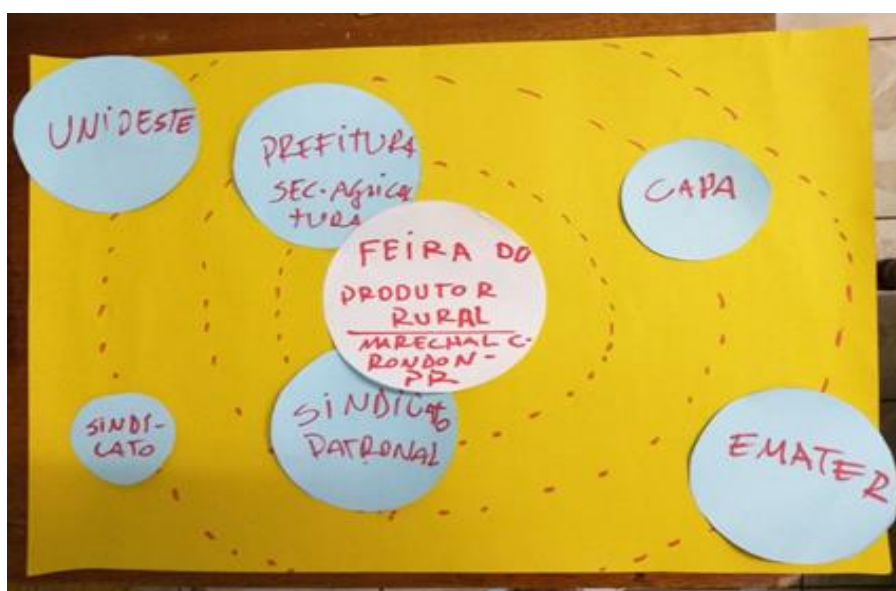 UNIDESTE
PREFITURA
SEC. AGRICUL
TURA
CAPA
FEIRA DO
PRODUTOR
RURAL
MARECHAL C.
RONDON-
PR
SINDI-
CATO
SINDICATO
PATRONAL
EMATER